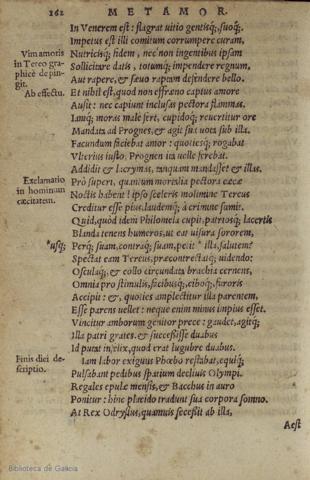 162 METAMOR.
In Venerem est: flagrat uitio gentisq́;, suoq́;.
Impetus est illi comitum corrumpere curam,
Vim amoris
Nutricisq́; fidem, nec non ingentibus ipsam
in Tereo gra-
Sollicitare datis, totumq́; impendere regnum,
phicè depin-
git.
Aut rapere, & sæuo raptam defendere bello.
Ab effectu.
Et nihil est, quod non effræno captus amore
Ausit: nec capiunt inclusas pectora flammas.
Iamq́; moras male fert, cupidoq́; reuertitur ore
Mandata ad Prognes, & agit sua uota sub illa.
Facundum faciebat amor: quotiesq́; rogabat
Vlterius iusto. Prognen ita uelle ferebat.
Addidit & lacrymas, tanquam mandasset & illas.
Exclamatio
Prô superi, quantum mortalia pectora cæcæ
in hominum
Noctis habent! ipso sceleris molimine Tereus
cæcitatem.
Creditur esse pius, laudemq́; à crimine sumit.
Quid, quòd idem Philomela cupit, patriosq́; lacertis
Blanda tenens humeros, ut eat uisura sororem,
*usq́;
Perq́; suam, contraq́; suam, petit * illa, salutem?
Spectat eam Tereus, præcontrectatq́; uidendo:
Osculaq́;, & collo circundata brachia cernens,
Omnia pro stimulis, facibusq́;, ciboq́;, furoris
Accipit: &, quoties amplectitur illa parentem,
Esse parens uellet: neque enim minus impius esset.
Vincitur amborum genitor prece: gaudet, agitq́;
Illa patri grates. & successisse duabus
Id putat infelix, quod erat lugubre duabus.
Finis diei de-
Iam labor exiguus Phœbo restabat, equiq́;
scriptio.
Pulsabant pedibus spatium decliuis Olympi.
Regales epulæ mensis, & Bacchus in auro
Ponitur: hinc placido tradunt sua corpora somno.
At Rex Odrysius, quamuis secessit ab illa,
Aest
Biblioteca de Galicia